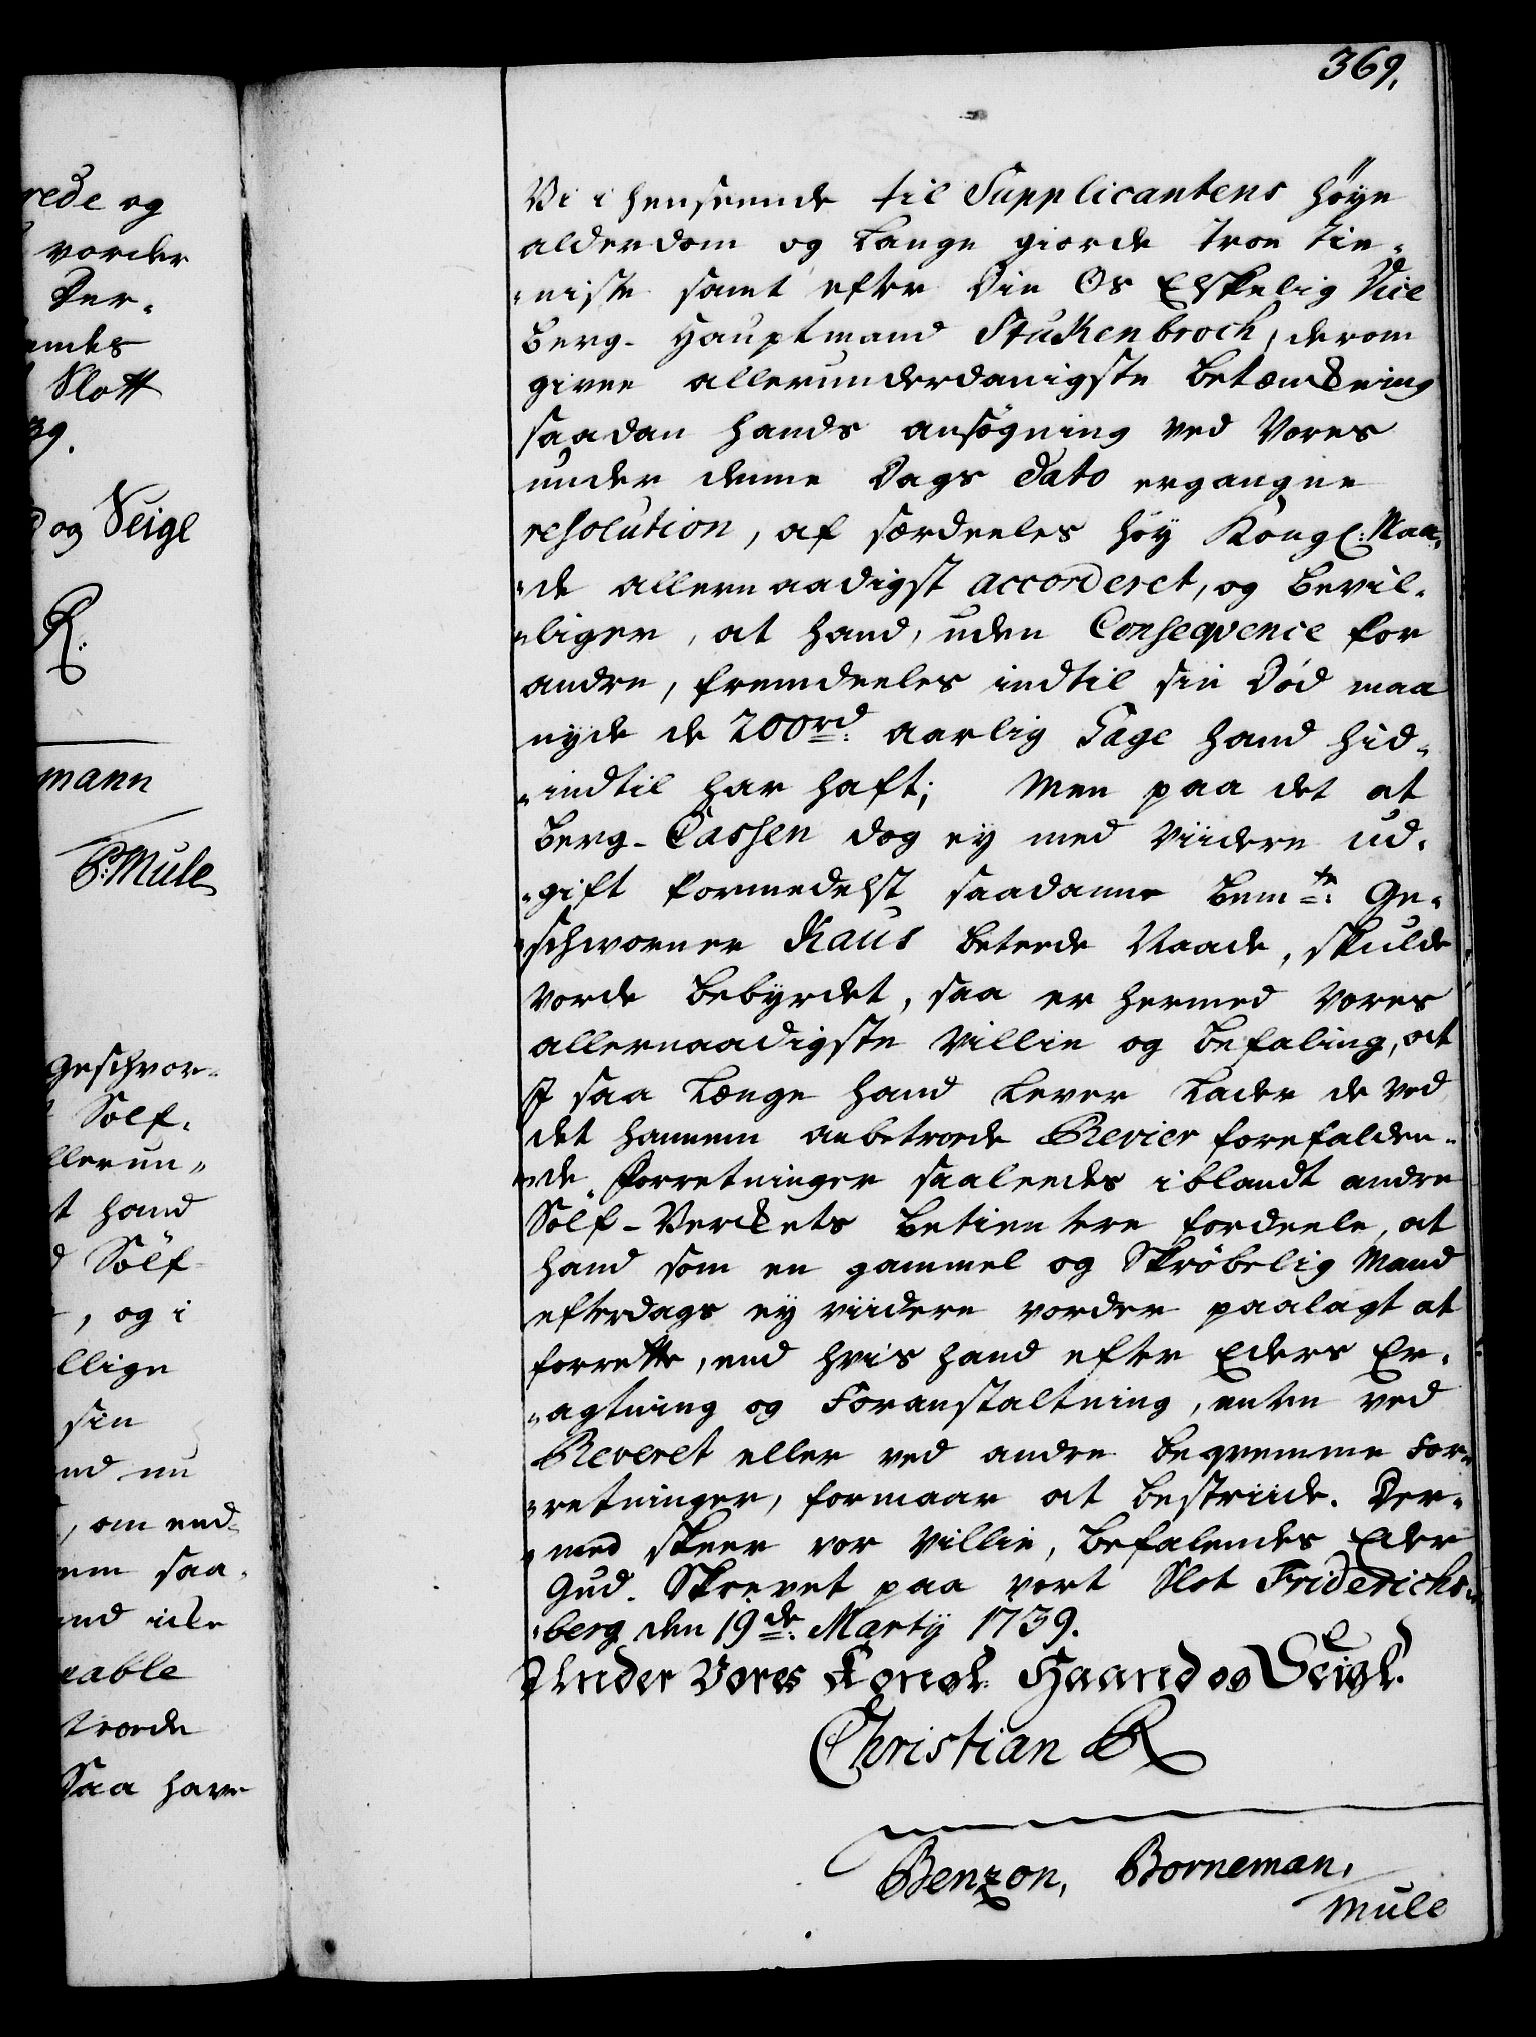 369.
rede og
vorder
Der-
endes
Slott
39.
og Seigl
R.
mann
P: Mule
Geschvor-
Sölf-
llerun-
t hand
Sölf-
, og i
llige
sin
nd nu
, om end-
em saa-
nd icke
cable
troede
Saa have
Vi i henseende til Supplicantens höye
alderdom og lange giorde troe tie-
-niste samt efter Din Os Elskelig Vice
Berg-Hauptmand Stukenbroch, derom
givne allerunderdanigste betænckning
saadan hands ansögning ved Vores
under denne Dags Dato ergangne
resolution, af særdeeles höy Kongl: Naa-
-de allernaadigst accorderet, og bevil-
-liger, at hand, uden Conseqvence for
andre, fremdeeles indtil sin Död maa
nyde de 200 rd: aarlig Gage hand hid-
-indtil har haft; Men paa det at
Berg-Cassen dog ey med viidere ud-
-gift formedelst saadanne bemte: Ge-
-schworner Kaus beteede Naade, skulde
vorde bebyrdet, saa er hermed Vores
allernaadigste Villie og befaling, at
I saa længe hand lever lader de ved
det hannem anbetroede Revier forefalden-
-de forretninger saaleedes iblandt andre
Sölf-Verckets betientere fordeele, at
hand som en gammel og Skröbelig Mand
efterdags ey viidere vorder paalagt at
forrette, end hvis hand efter Eders Er-
-agtning og Foranstaltning, enten ved
Reveret eller ved andre beqvemme For-
-retninger, formaar at bestriide. Der-
-med skeer vor Villie, befalendes Eder
Gud. Skrevet paa vort Slot Friderichs-
-berg den 19de: Martÿ 1739.
Under Vores Kongl: Haand og Seigl.
Christian R
Benzon, Borneman,
Mule